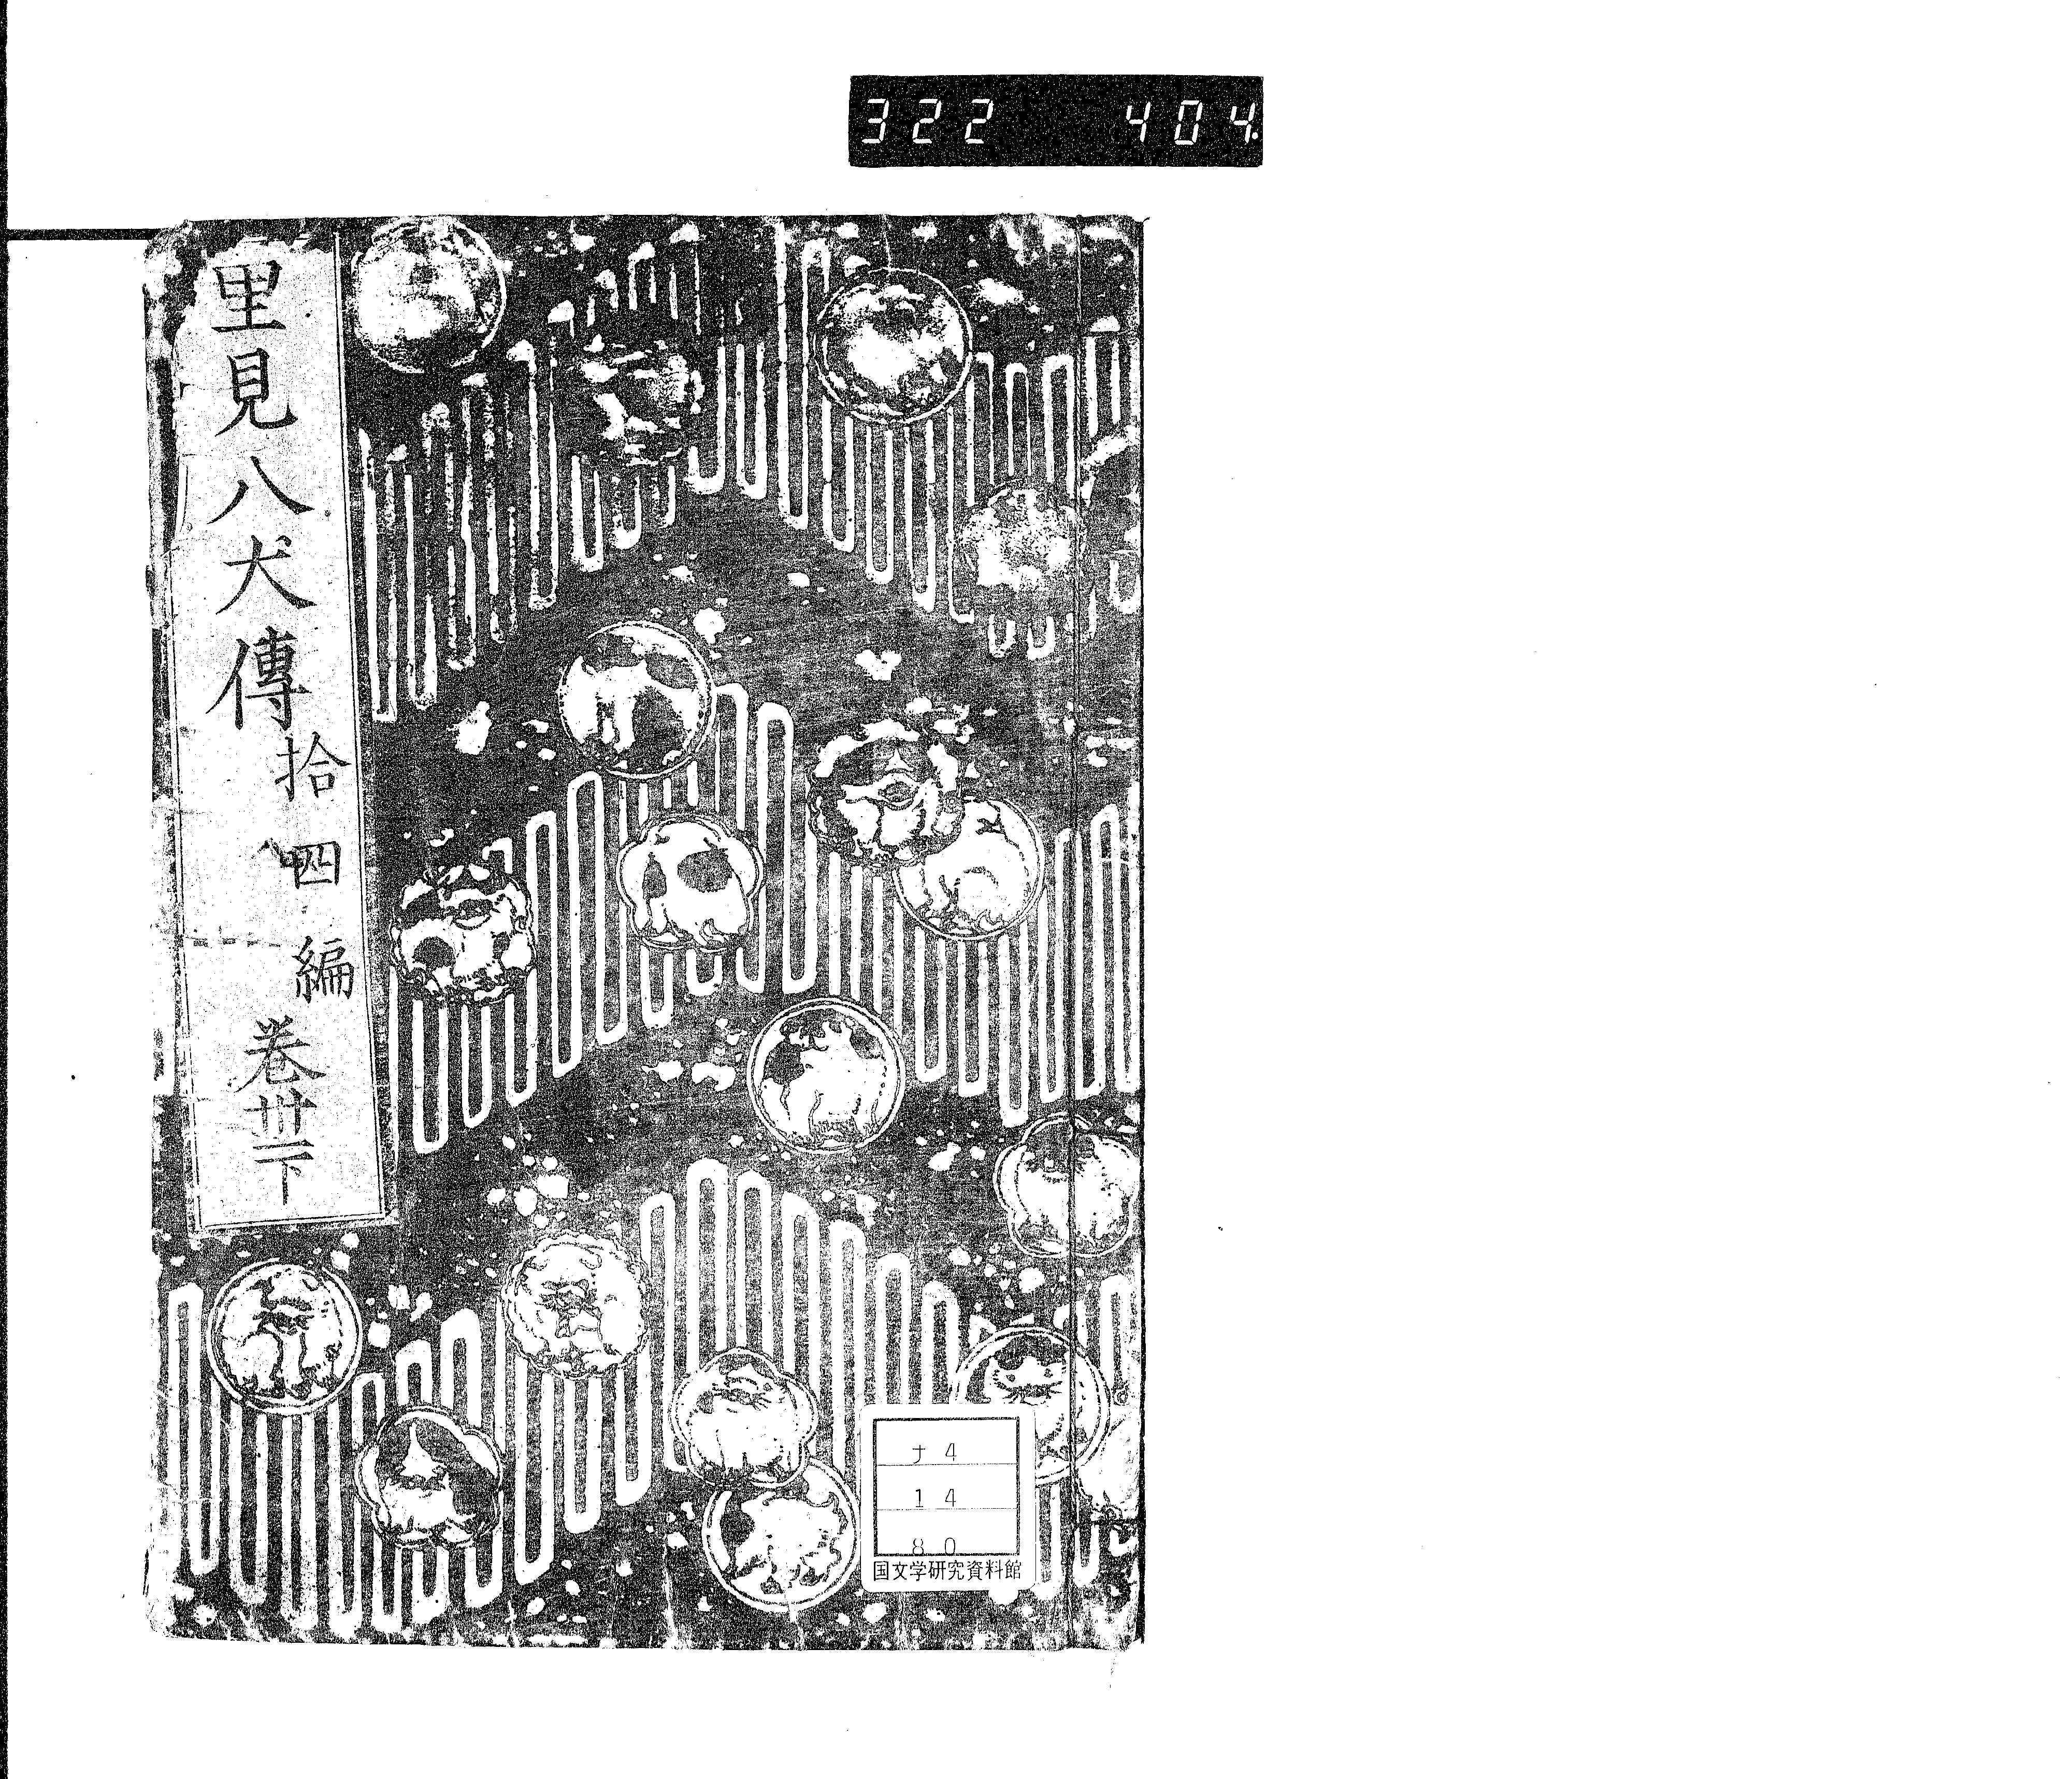 322 404.
里見八犬傳 拾四編 卷卅一下
ナ4
14
80
国文学研究資料館